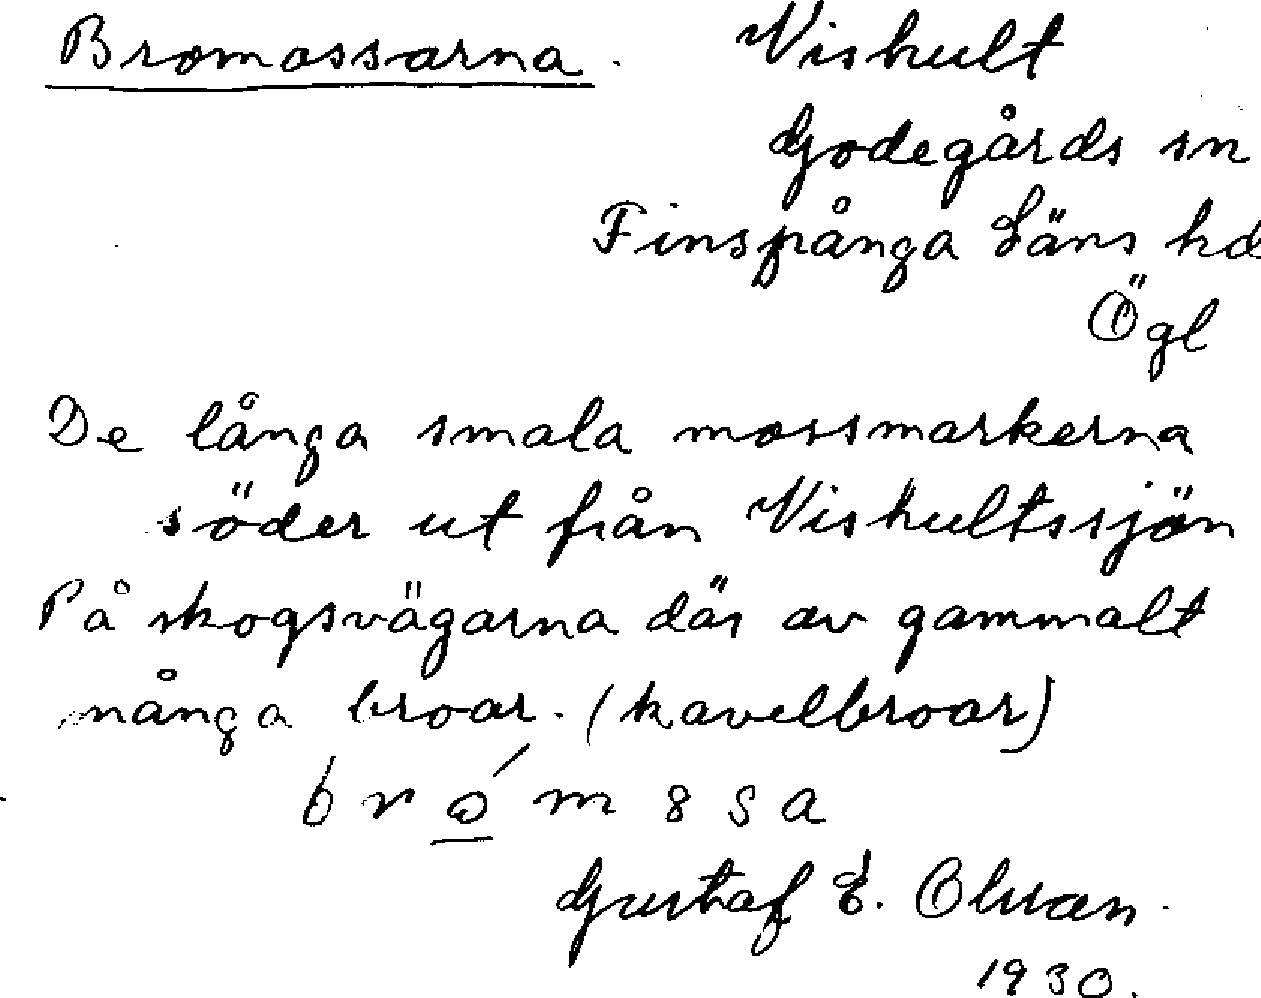 Bromossarna. Viskult
Godegårds sn
Finspånga Läns hd
Ögl
De långa smala mossmarkerna
söder ut från Viskultssjön
På skogsvägarna där av gammalt
många broar. (kavelbroar)
Gustaf E. Olsson.
1930.